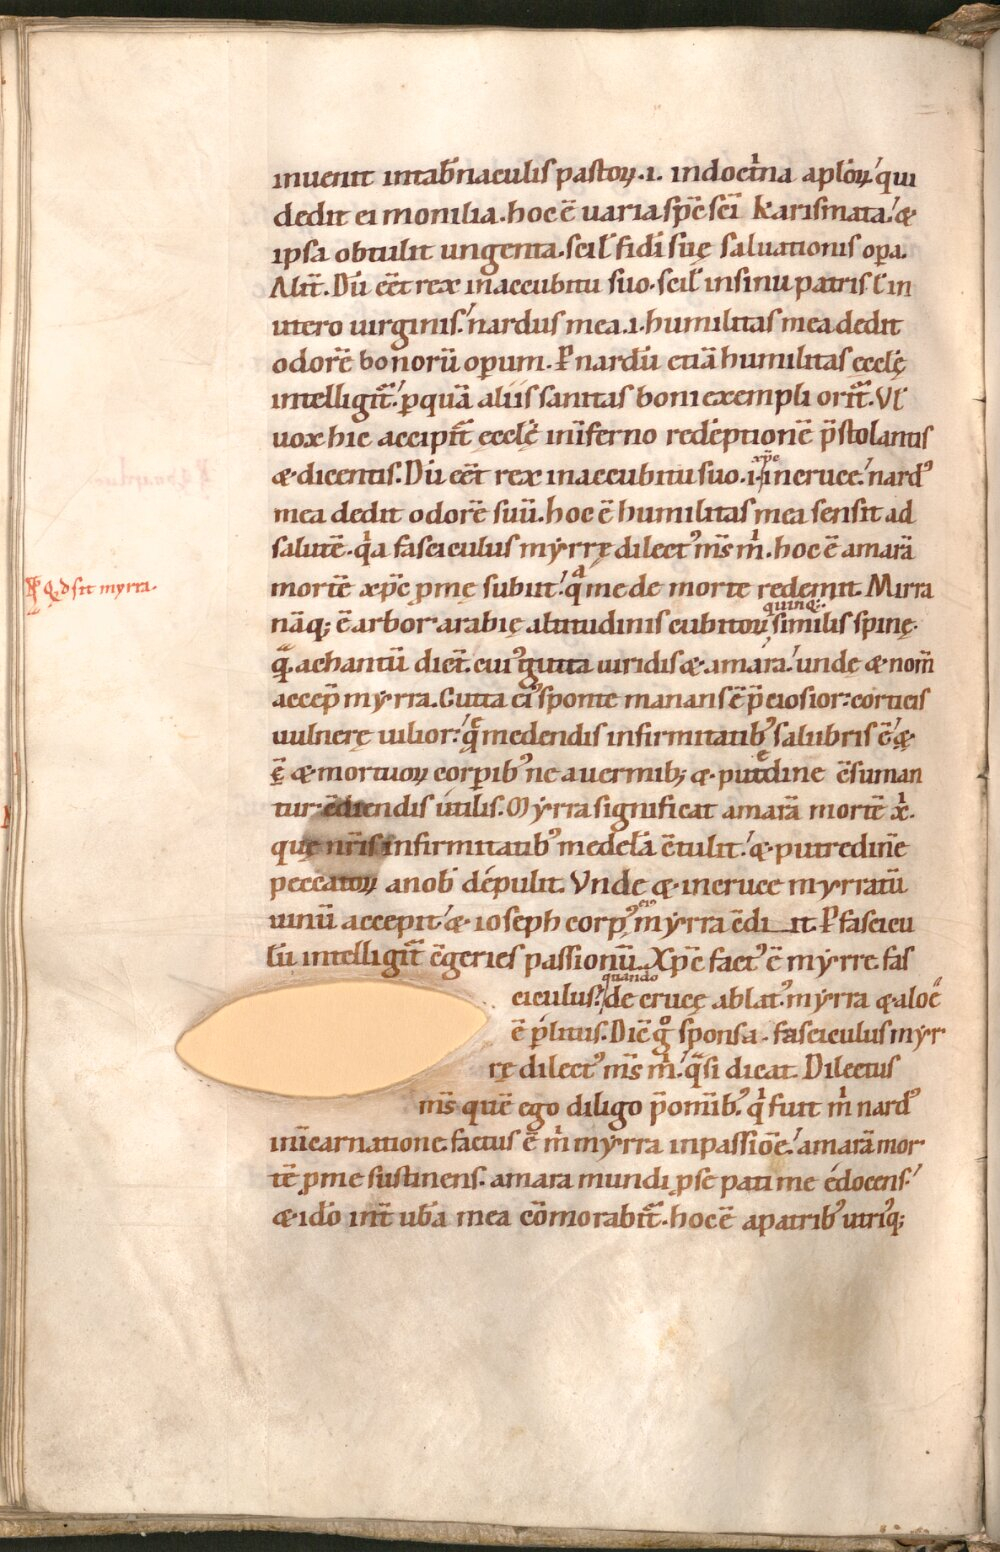 inuenit intab̄naculis pastoꝝ .i. indoctͥna aplōꝝ qui
dedit ei monilia . hoc ē uaria sp̄c sc̄i karismata . &
ipsa obtulit ungenta . scil̄ fidi suę saluationis oꝑa .
Alit̄ . Dū eēt rex inaccubitu suo . scil̄ insinu patris l̄ in
utero uirginis . nardus mea .i. humilitas mea dedit
odorē bonorū oꝑum . P nardū etiā humilitas ęcclę
intelligit̄ . ꝑquā aliis sanitas boni exempli orit̄ . Vl̄
uox hic accipit̄ ęcclę inīferno redēptionē p̄stolantis
& dicentis . Dū eēt rex inaccubitu suo .i. xp̄c incruce . nardꝰ
mea dedit odorē suū . hoc ē humilitas mea sensit ad
salutē . qͥa fasciculus myrrę dilectꝰ m̄s m̄ . hoc ē amarā
mortē xp̄c ꝑ me subiit . qͣ me de morte redemit . Mirra
Qd sit myrra .
nāq; ē arbor arabię altitudinis cubitoꝝ quinq; similis spinę .
q̄ achantū dic̄t . cuiꝰ gutta uiridis & amara . unde & nom̄
accep̄ myrra . Gutta eiꝰ sponte manans ē p̄ciosior : corticis
uulnere uilior : q̄ medendis infirmitatibꝰ salubris ē . &
ē & mortuoꝝ corꝑibꝰ ne auermib; & putredine ēsuman
tur ēdiendis utilis . Myrra significat amarā mortē x̄ .
quę nr̄is infirmitatibꝰ medelā ētulit . & putredinē
peccatoꝝ anobꝰ depulit . Vnde & incruce myrratū
uinū accepit . & ioseph corpꝰ eiꝰ myrra ēdi it . P fascicu
lū intelligit̄ ēgeries passionū . Xp̄c factꝰ ē myrrę fas
ciculus . quando de cruce ablatꝰ myrra & aloē
ē ꝑlitus . Dic̄ gͦ sponsa . fasciculus myr
rę dilectꝰ m̄s m̄ . q̄si dicat . Dilectus
m̄s quē ego diligo p̄ om̄ibꝰ . qͥ fuit m̄ nardꝰ
inīcarnatione factus ē m̄ myrra inpassiōe . amarā mor
tē ꝑ me sustinens . amara mundi ꝑ se pati me edocens .
& idō int̄ ub̄a mea cōmorabit̄ . hoc ē apatribꝰ utriꝰq;